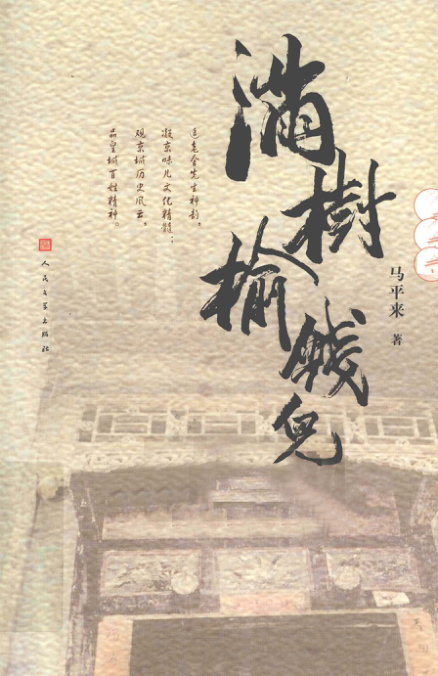 滿樹
榆錢兒
马平来 著
追老舍先生神韵、
凝京味儿文化精髓；
观京城历史风云、
品皇城百姓精神。
人民文学出版社